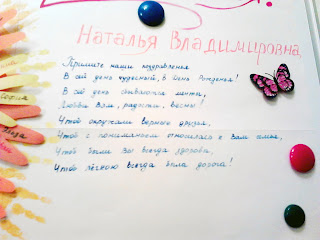 Наталья Владимировна,
Примите наши поздравления
В сей день чудесный, в день Рожденья!
В сей день сбываются мечты,
Любви Вам, радости, весны!
Чтоб окружали верные друзья,
Чтоб с пониманием относилась к Вам семья,
Чтоб были Вы всегда здорова,
Чтоб лёгкою всегда была дорога!